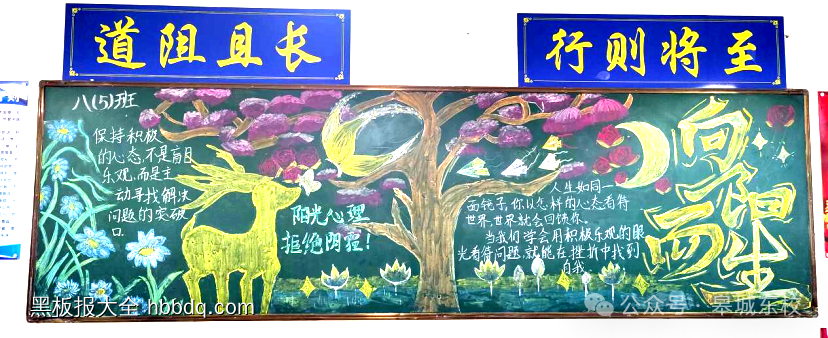 道阻且长
行则将至
八(5)班
保持积极
的心态,不是盲目
乐观,而是主
动寻找解决
问题的突破
口
阳光心理
拒绝阴霾!
人生如同一
面镜子,你以怎样的心态看待
世界,世界就会回馈你。
当我们学会用积极乐观的眼
光看待问题,就能在挫折中找到
自我
向阳
而生
黑板报大全 hbbdq.com
公众号·皋城东校